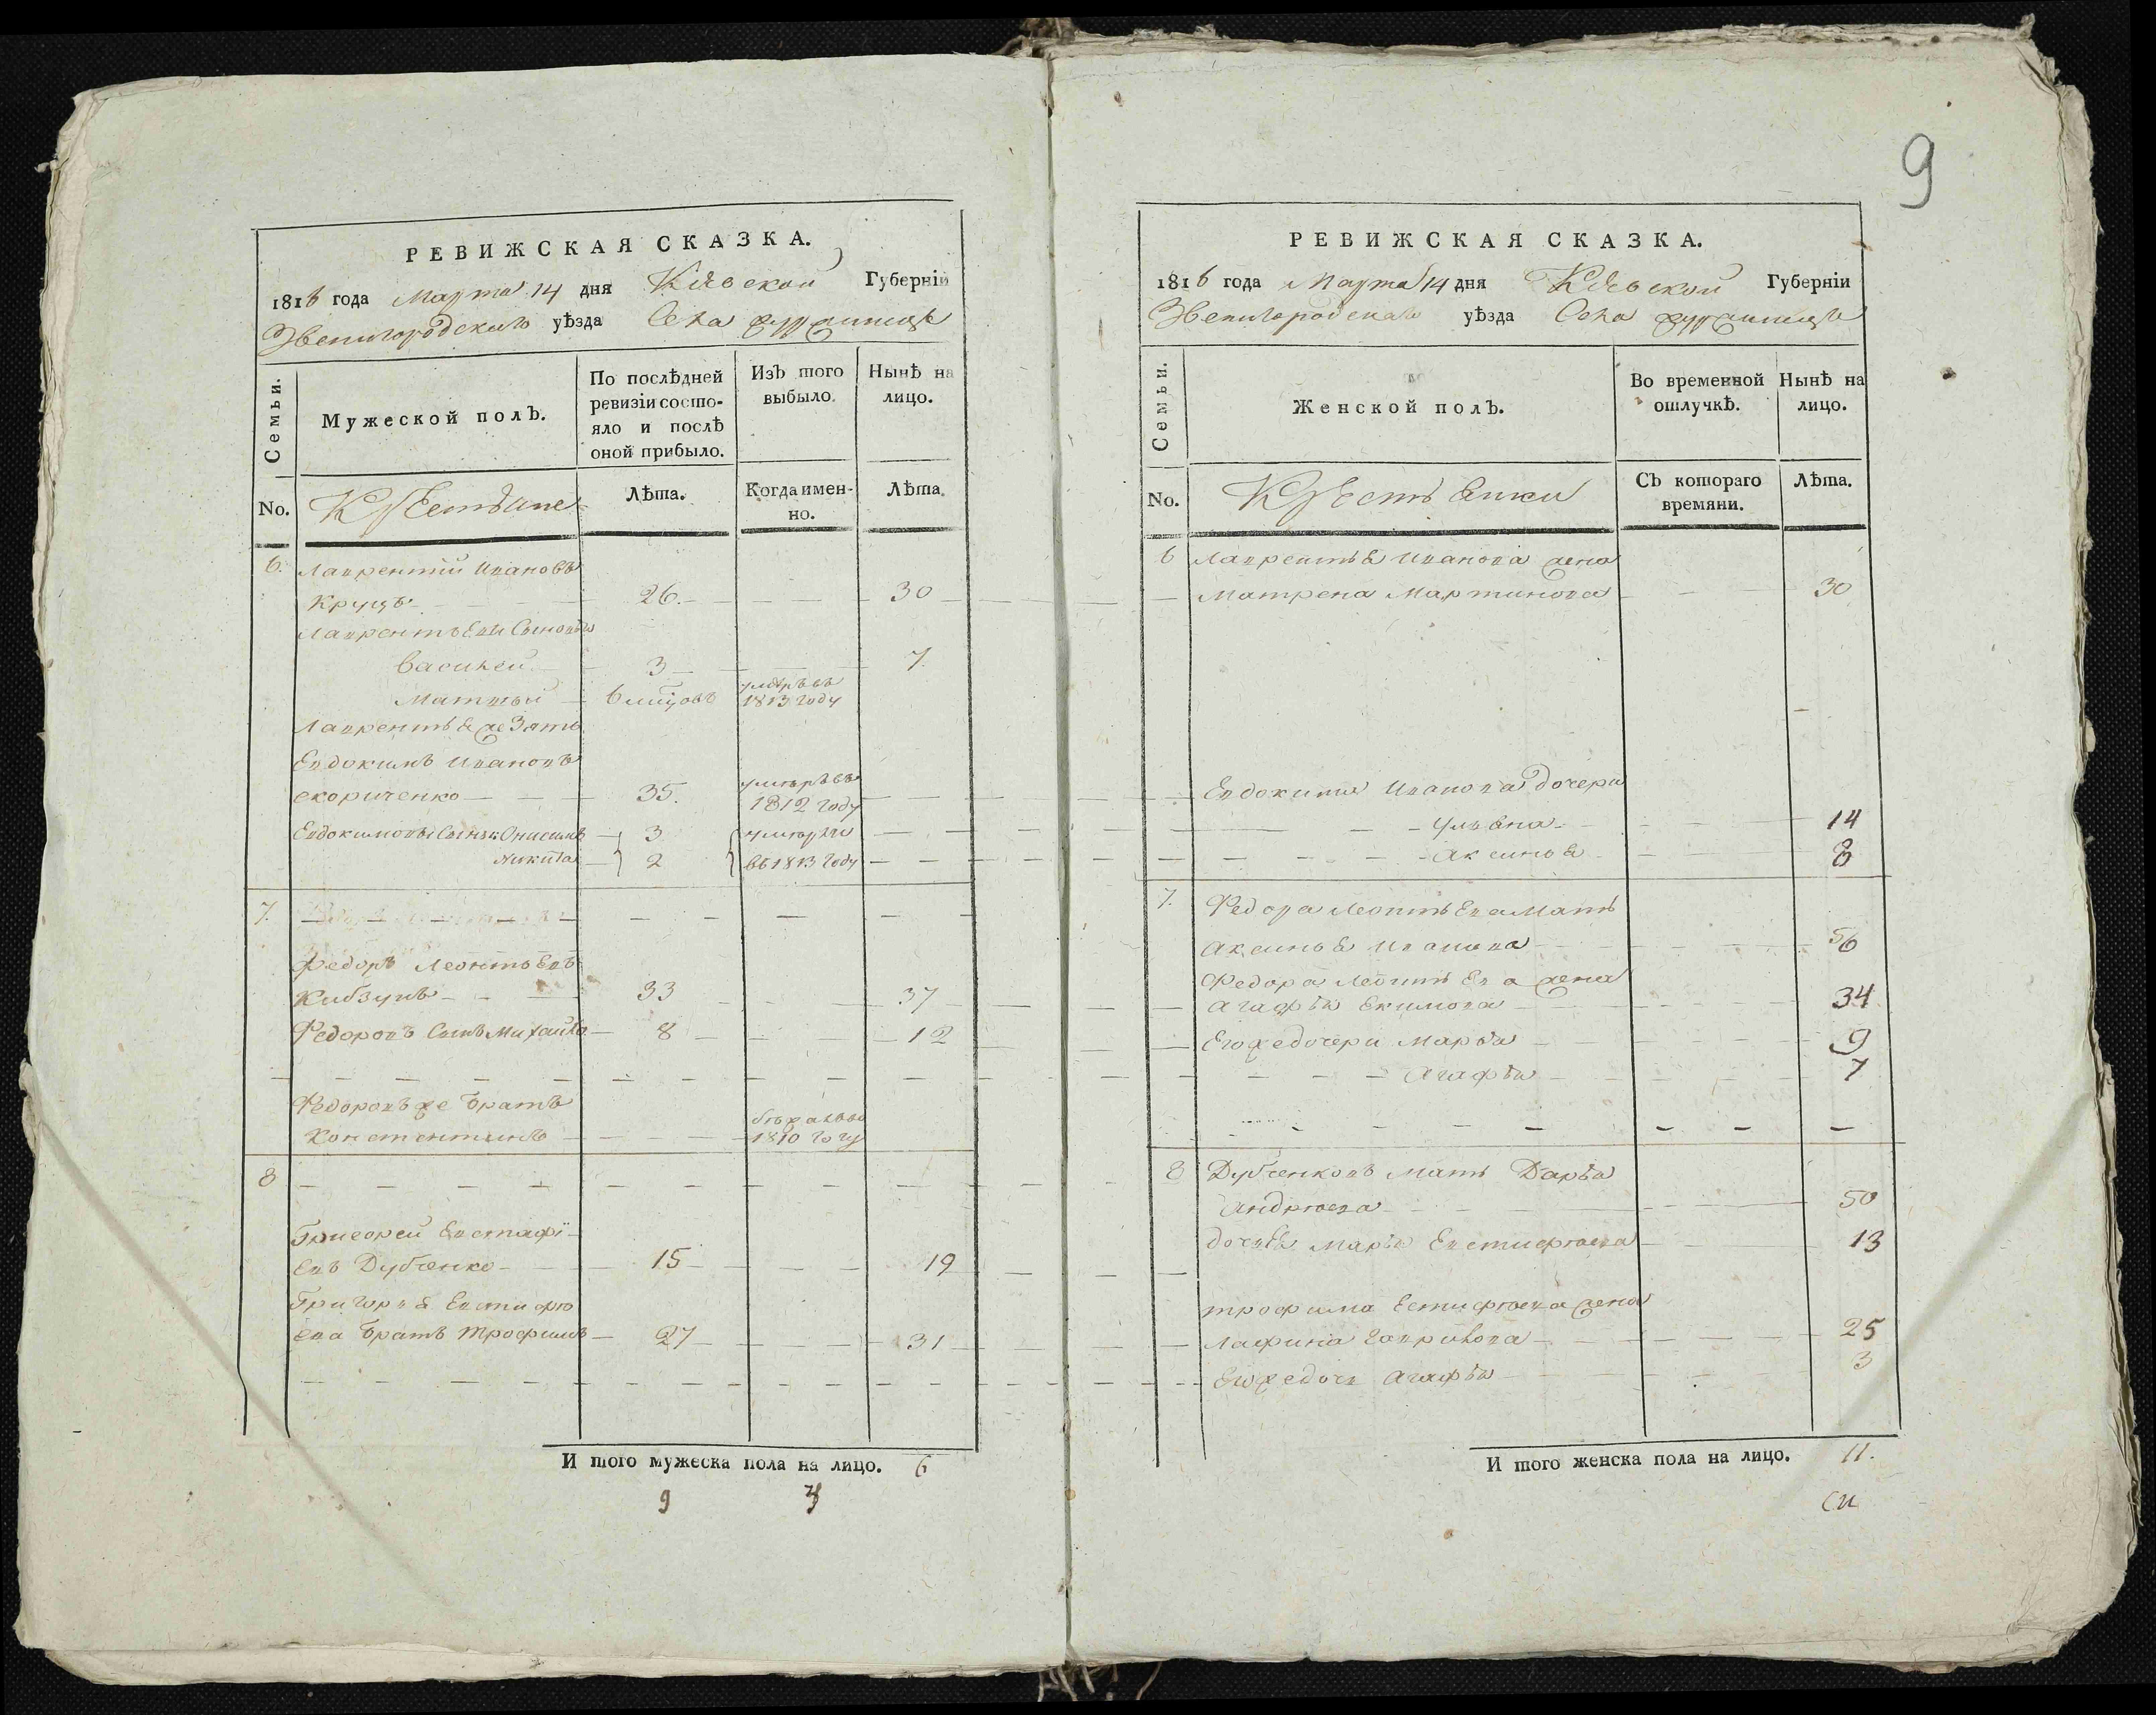 РЕВИЖСКАЯ СКАЗКА.
1816 года Марта 14 дня Кіевской Губерніи
Звенигородскаго уѣзда Села
Семьи.
Мужеской полъ.
По послѣдней ревизіи состояло и послѣ оной прибыло.
Изъ того выбыло.
Нынѣ на лицо.
No.
Крестьяне
Лѣта.
Когда именно.
Лѣта.
6. Лаврентий Ивановъ
26. 30
Лаврентьевы Сыновья
Василей 3 7.
Матвѣй 6 умѣръ въ 1813 году
Лаврентья же Зять
Евдокимъ Ивановъ
скориченко 35. умѣръ въ 1812 году
Евдокимовы Сыны Онисимъ 3 умѣрли
Никита 2 въ 1813 году
7.
Федоръ Леонтьевъ
Кибзунъ 33 37
Федоровъ Сынъ Михайло 8 12
Федоровъ же братъ
Константинъ бѣжалъ въ 1810 году
8
Григорей Евстафі-
евъ Дубченко 15 19
Григорья Евстифѣ
ева братъ Трофимъ 27 31
И того мужеска пола на лицо. 6
9
9
РЕВИЖСКАЯ СКАЗКА.
1816 года Марта 14 дня Кіевской Губерніи
Звенигородскаго уѣзда Села
Семьи.
Женской полъ.
Во временной отлучкѣ.
Нынѣ на лицо.
No.
Крестьянки
Съ котораго времяни.
Лѣта.
6 Лаврентья Иванова жена
Матрена Мартинова 30
Евдокима Иванова дочери
Ульяна 14
Аксинья 8
7. Федора Леонтьева Мать
Аксинья Иванова 56
Федора Леонтьева жена
Агафья Екимова 34
Его же дочери Марья 9
Агафья 7
8 Дубченковъ Мать Дарья
Андрѣева 50
дочь Марья Евстифѣева 13
Трофима Естифѣева жена
Гаврилова 25
Его же дочь Агафья 3
И того женска пола на лицо. 11.